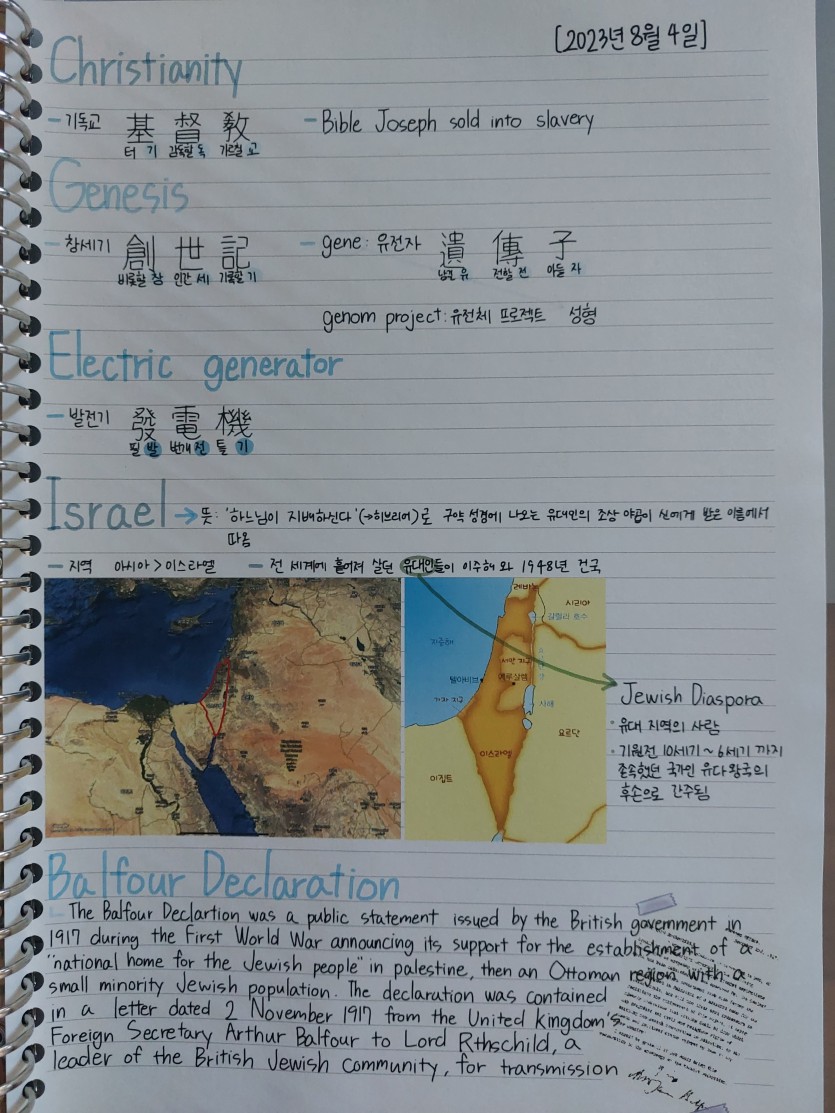 [2023년 8월 4일]
Christianity
- 기독교 基督敎 - Bible Joseph sold into slavery
터 기 감독할 독 가르칠 교
Genesis
- 창세기 創世記 - gene: 유전자 遺傳子
비롯할 창 인간 세 기록할 기 남길 유 전할 전 아들 자
genom project: 유전체 프로젝트 성형
Electric generator
- 발전기 發電機
필 발 번개 전 틀 기
Israel → 뜻: '하느님이 지배하신다'(→히브리어)로 구약성경에 나오는 유대인의 조상 야곱이 신에게 받은 이름에서
따옴
- 지역 아시아 > 이스라엘 - 전 세계에 흩어져 살던 유대인들이 이주해 와 1948년 건국
레바논
시리아
갈릴리 호수
지중해
서안 지구
텔아비브
예루살렘
가자 지구
사해
요르단
이스라엘
이집트
Jewish Diaspora
· 유대 지역의 사람
· 기원전 10세기 ~ 6세기 까지
존속했던 국가인 유다왕국의
후손으로 간주됨
Balfour Declaration
The Balfour Declartion was a public statement issued by the British government in
1917 during the First World War announcing its support for the establishment of a
"national home for the Jewish people" in palestine, then an Ottoman region with a
small minority Jewish population. The declaration was contained
in a letter dated 2 November 1917 from the United kingdom's
Foreign Secretary Arthur Balfour to Lord Rthschild, a
leader of the British Jewish community, for transmission